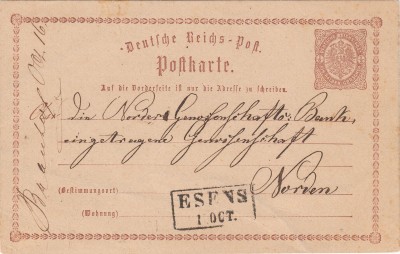 Deutsche Reichs-Post.
Postkarte.
Auf die Vorderseite ist nur die Adresse zu schreiben.
An die Norder Genossenschafts-Bank,
eingetragene Genossenschaft
(Bestimmungsort)
Norden
(Wohnung)
ESENS
1 OCT.